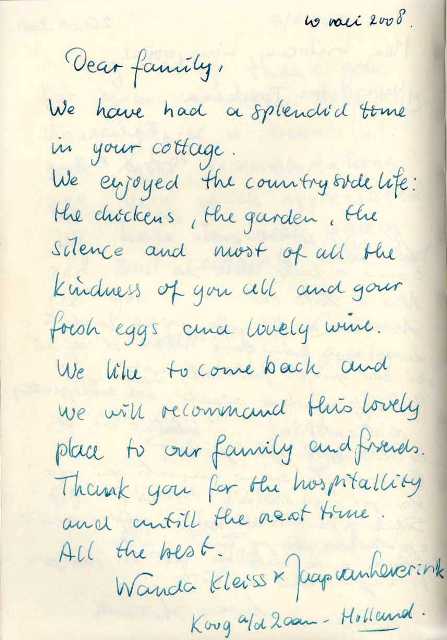 10 mei 2008.
Dear family,
We have had a splendid time
in your cottage.
We enjoyed the countryside life:
the chickens, the garden, the
silence and most of all the
kindness of you all and your
fresh eggs and lovely wine.
We like to come back and
we will recommand this lovely
place to our family and friends.
Thank you for the hospitallity
and untill the next time.
All the best.
Wanda Kleiss & Jaap van
Koog a/d Zaan - Holland.